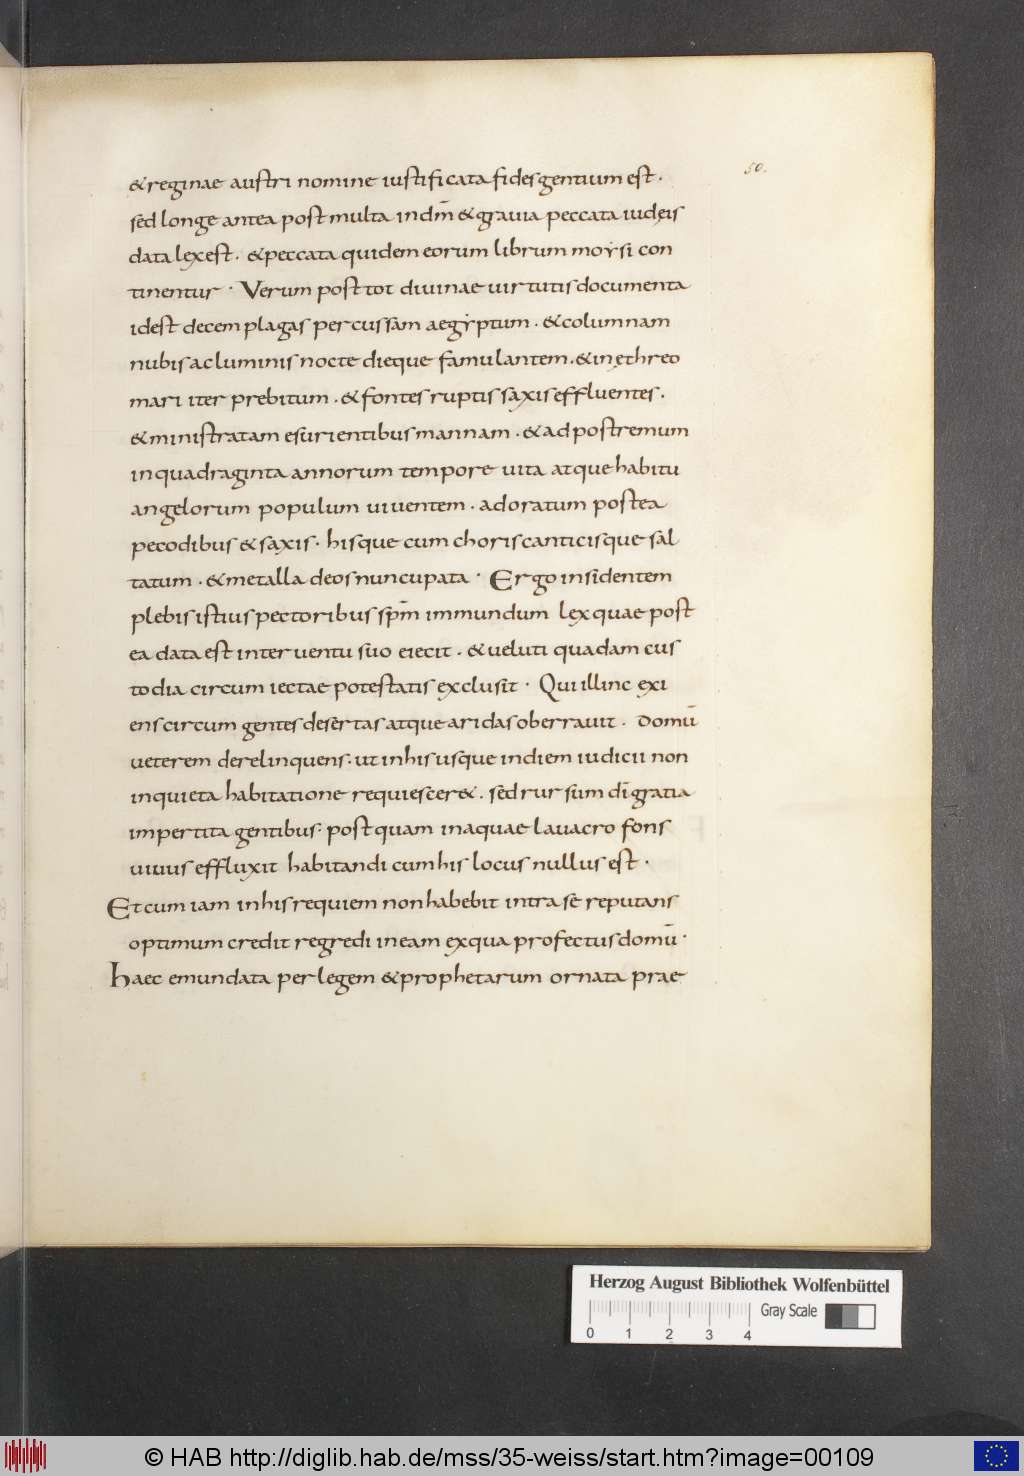 50.
& reginae austri nomine iustificata fides gentium est.
sed longe antea post multa in dm̄ & grauia peccata iudęis
data lex est. & peccata quidem eorum librum moysi con
tinentur · Verum post tot diuinae uirtutis documenta
id est decem plagas percussam aegyptum. & columnam
nubis ac luminis nocte dieque famulantem. & in ęthreo
mari iter prebitum. & fontes ruptis saxis effluentes.
& ministratam esurientibus mannam. & ad postremum
in quadraginta annorum tempore uita atque habitu
angelorum populum uiuentem. adoratum postea
pecodibus & saxis. hisque cum choris canticisque sal
tatum. & metalla deos nuncupata · Ergo insidentem
plebis istius pectoribus spm̄ immundum lex quae post
ea data est interuentu suo eiecit. & ueluti quadam cus
todia circum iectae potestatis exclusit · Qui illinc exi
ens circum gentes desertas atque aridas oberrauit. domū
ueterem derelinquens. ut in his usque in diem iudicii non
inquieta habitatione requiescer&. sed rursum dī gratia
impertita gentibus. post quam in aquae lauacro fons
uiuus effluxit habitandi cum his locus nullus est.
Et cum iam in his requiem non habebit intra se reputans
optimum credit regredi in eam ex qua profectus domū.
haec emundata per legem & prophetarum ornata prae
Herzog August Bibliothek Wolfenbüttel
Gray Scale
0 1 2 3 4
© HAB http://diglib.hab.de/mss/35-weiss/start.htm?image=00109